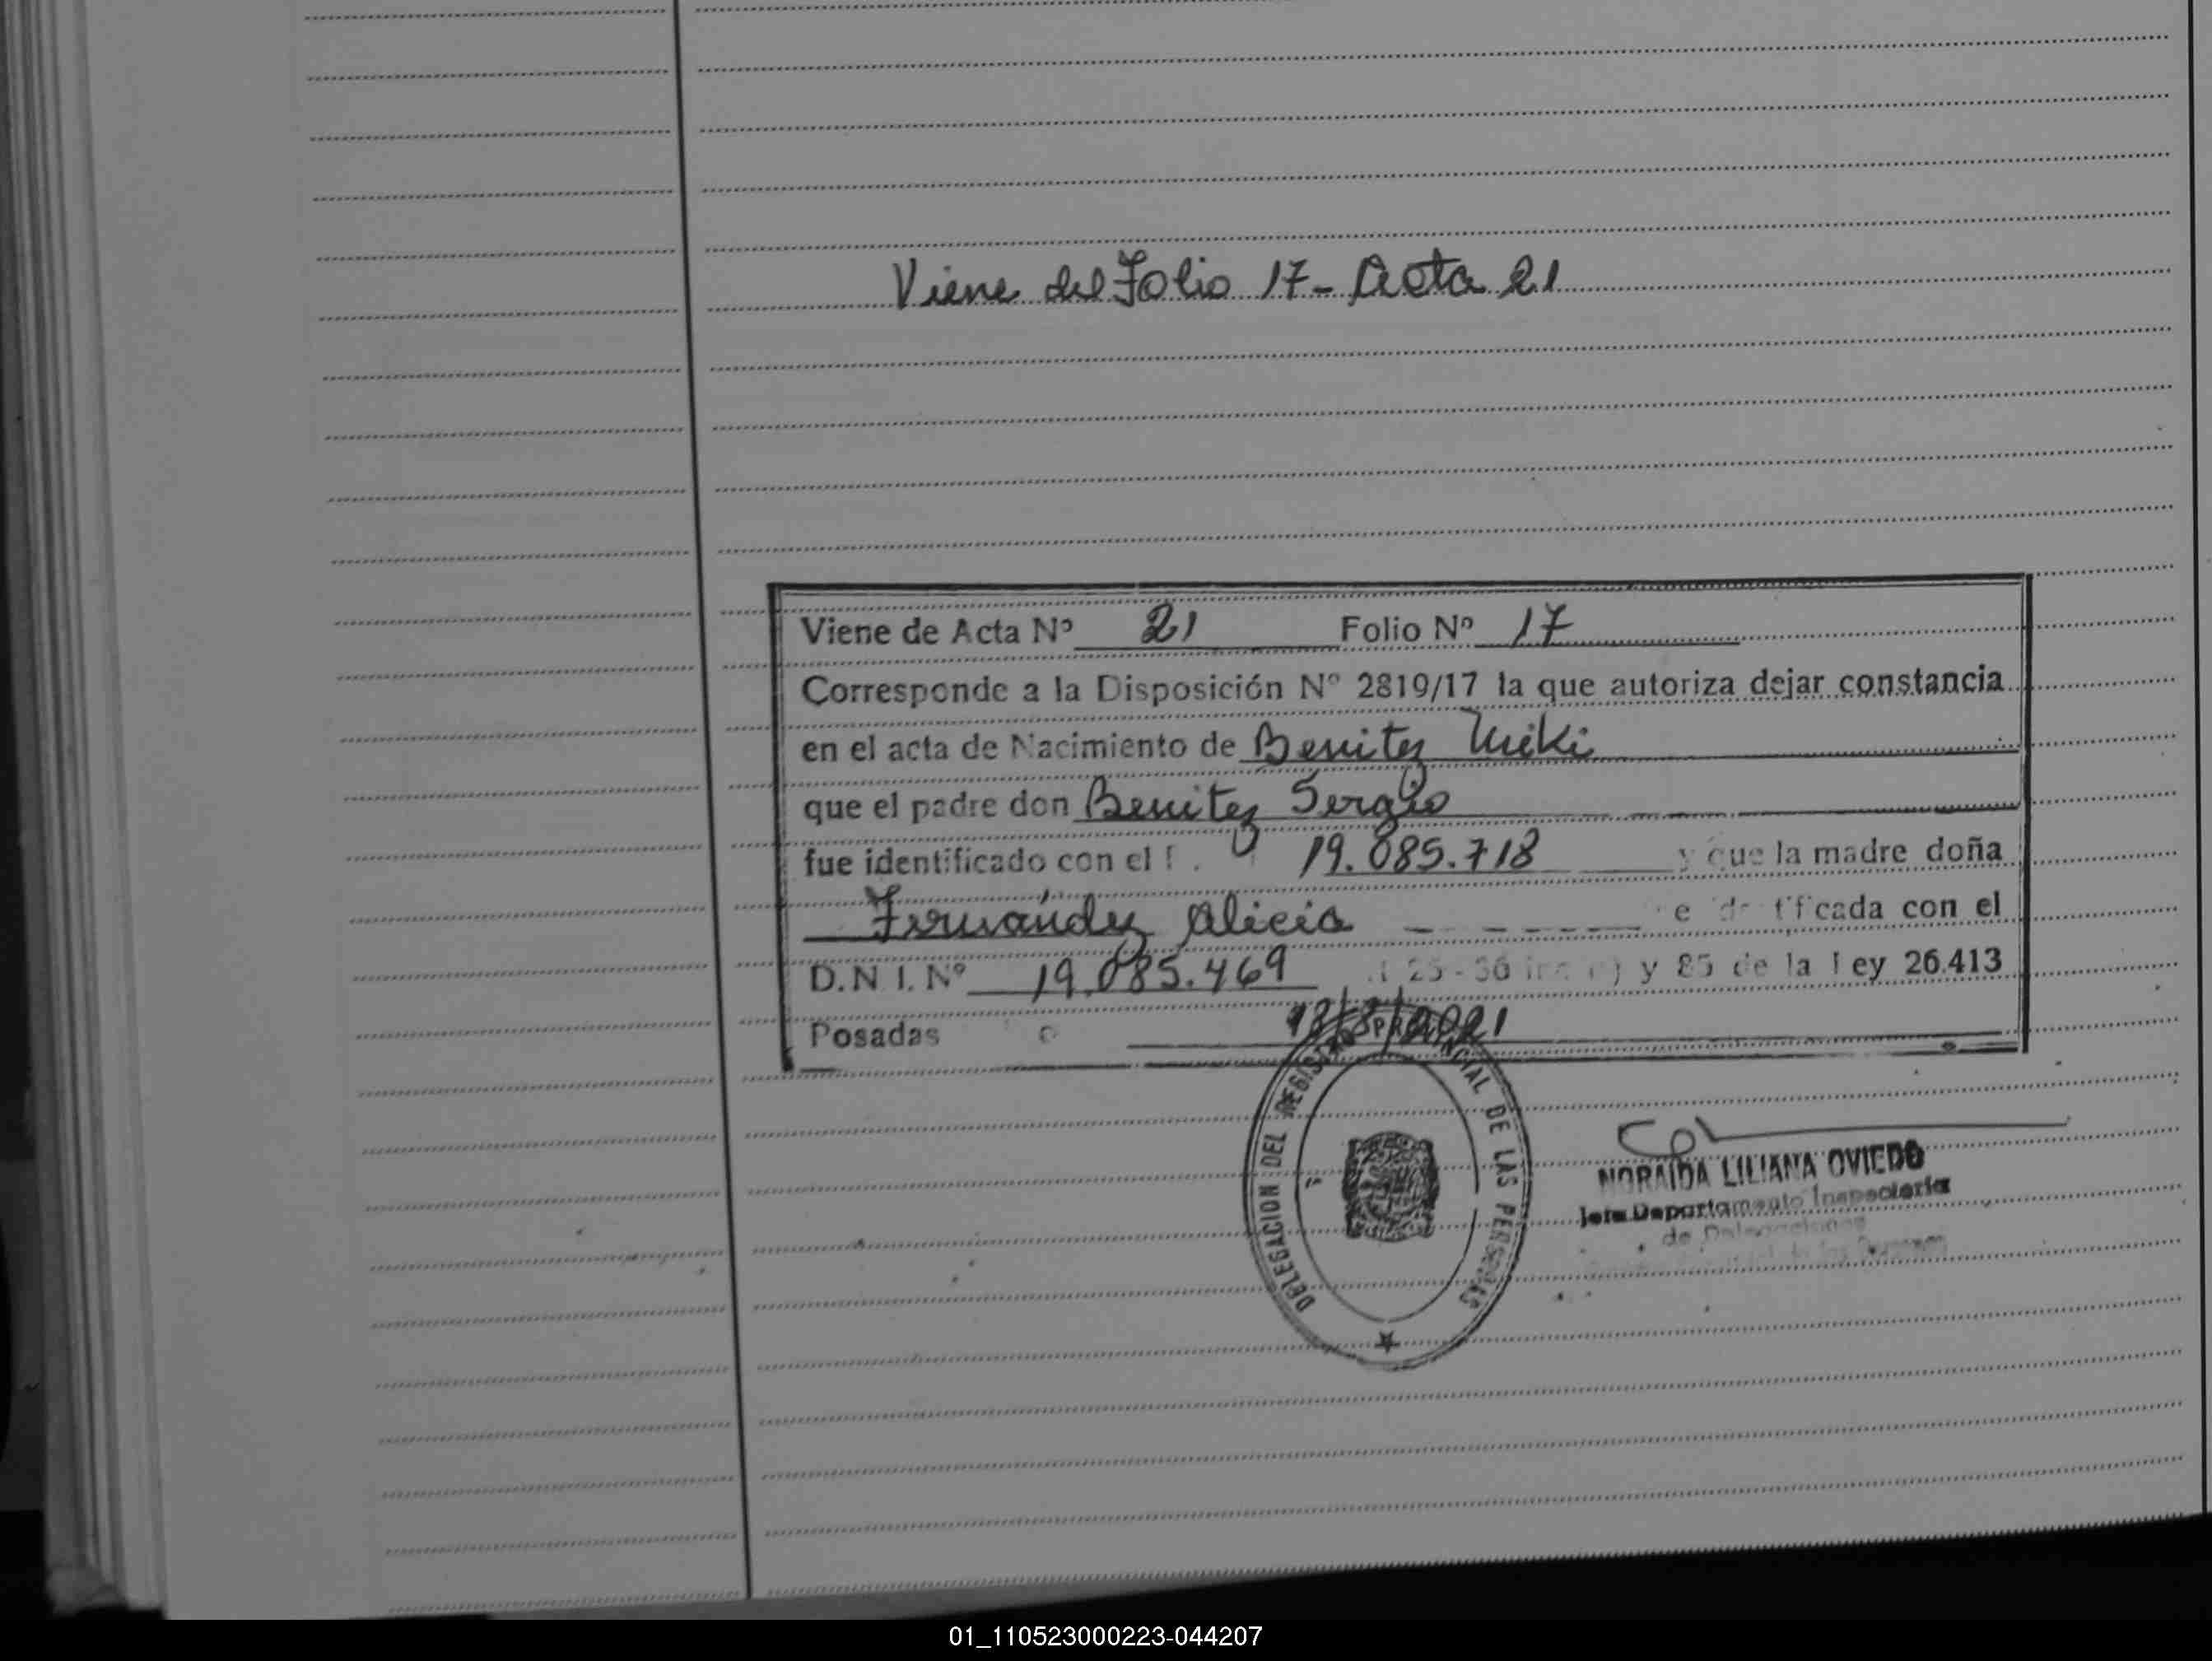 Viene del Folio 17- Acta 21
Viene de Acta Nº 21 Folio Nº 17
Corresponde a la Disposición Nº 2819/17 la que autoriza dejar constancia
en el acta de Nacimiento de Benitez Miki
que el padre don Benitez Sergio
fue identificado con el 19.085.718 y que la madre doña
Fernández Alicia identificada con el
D.N.I. Nº 19.085.469 y 85 de la Ley 26.413
Posadas 13/8/2021
DELEGACION DEL REGISTRO PROVINCIAL DE LAS PERSONAS
NORAIDA LILIANA OVIEDO
Jefa Departamento Inspectoria
de Delegaciones
01_110523000223-044207